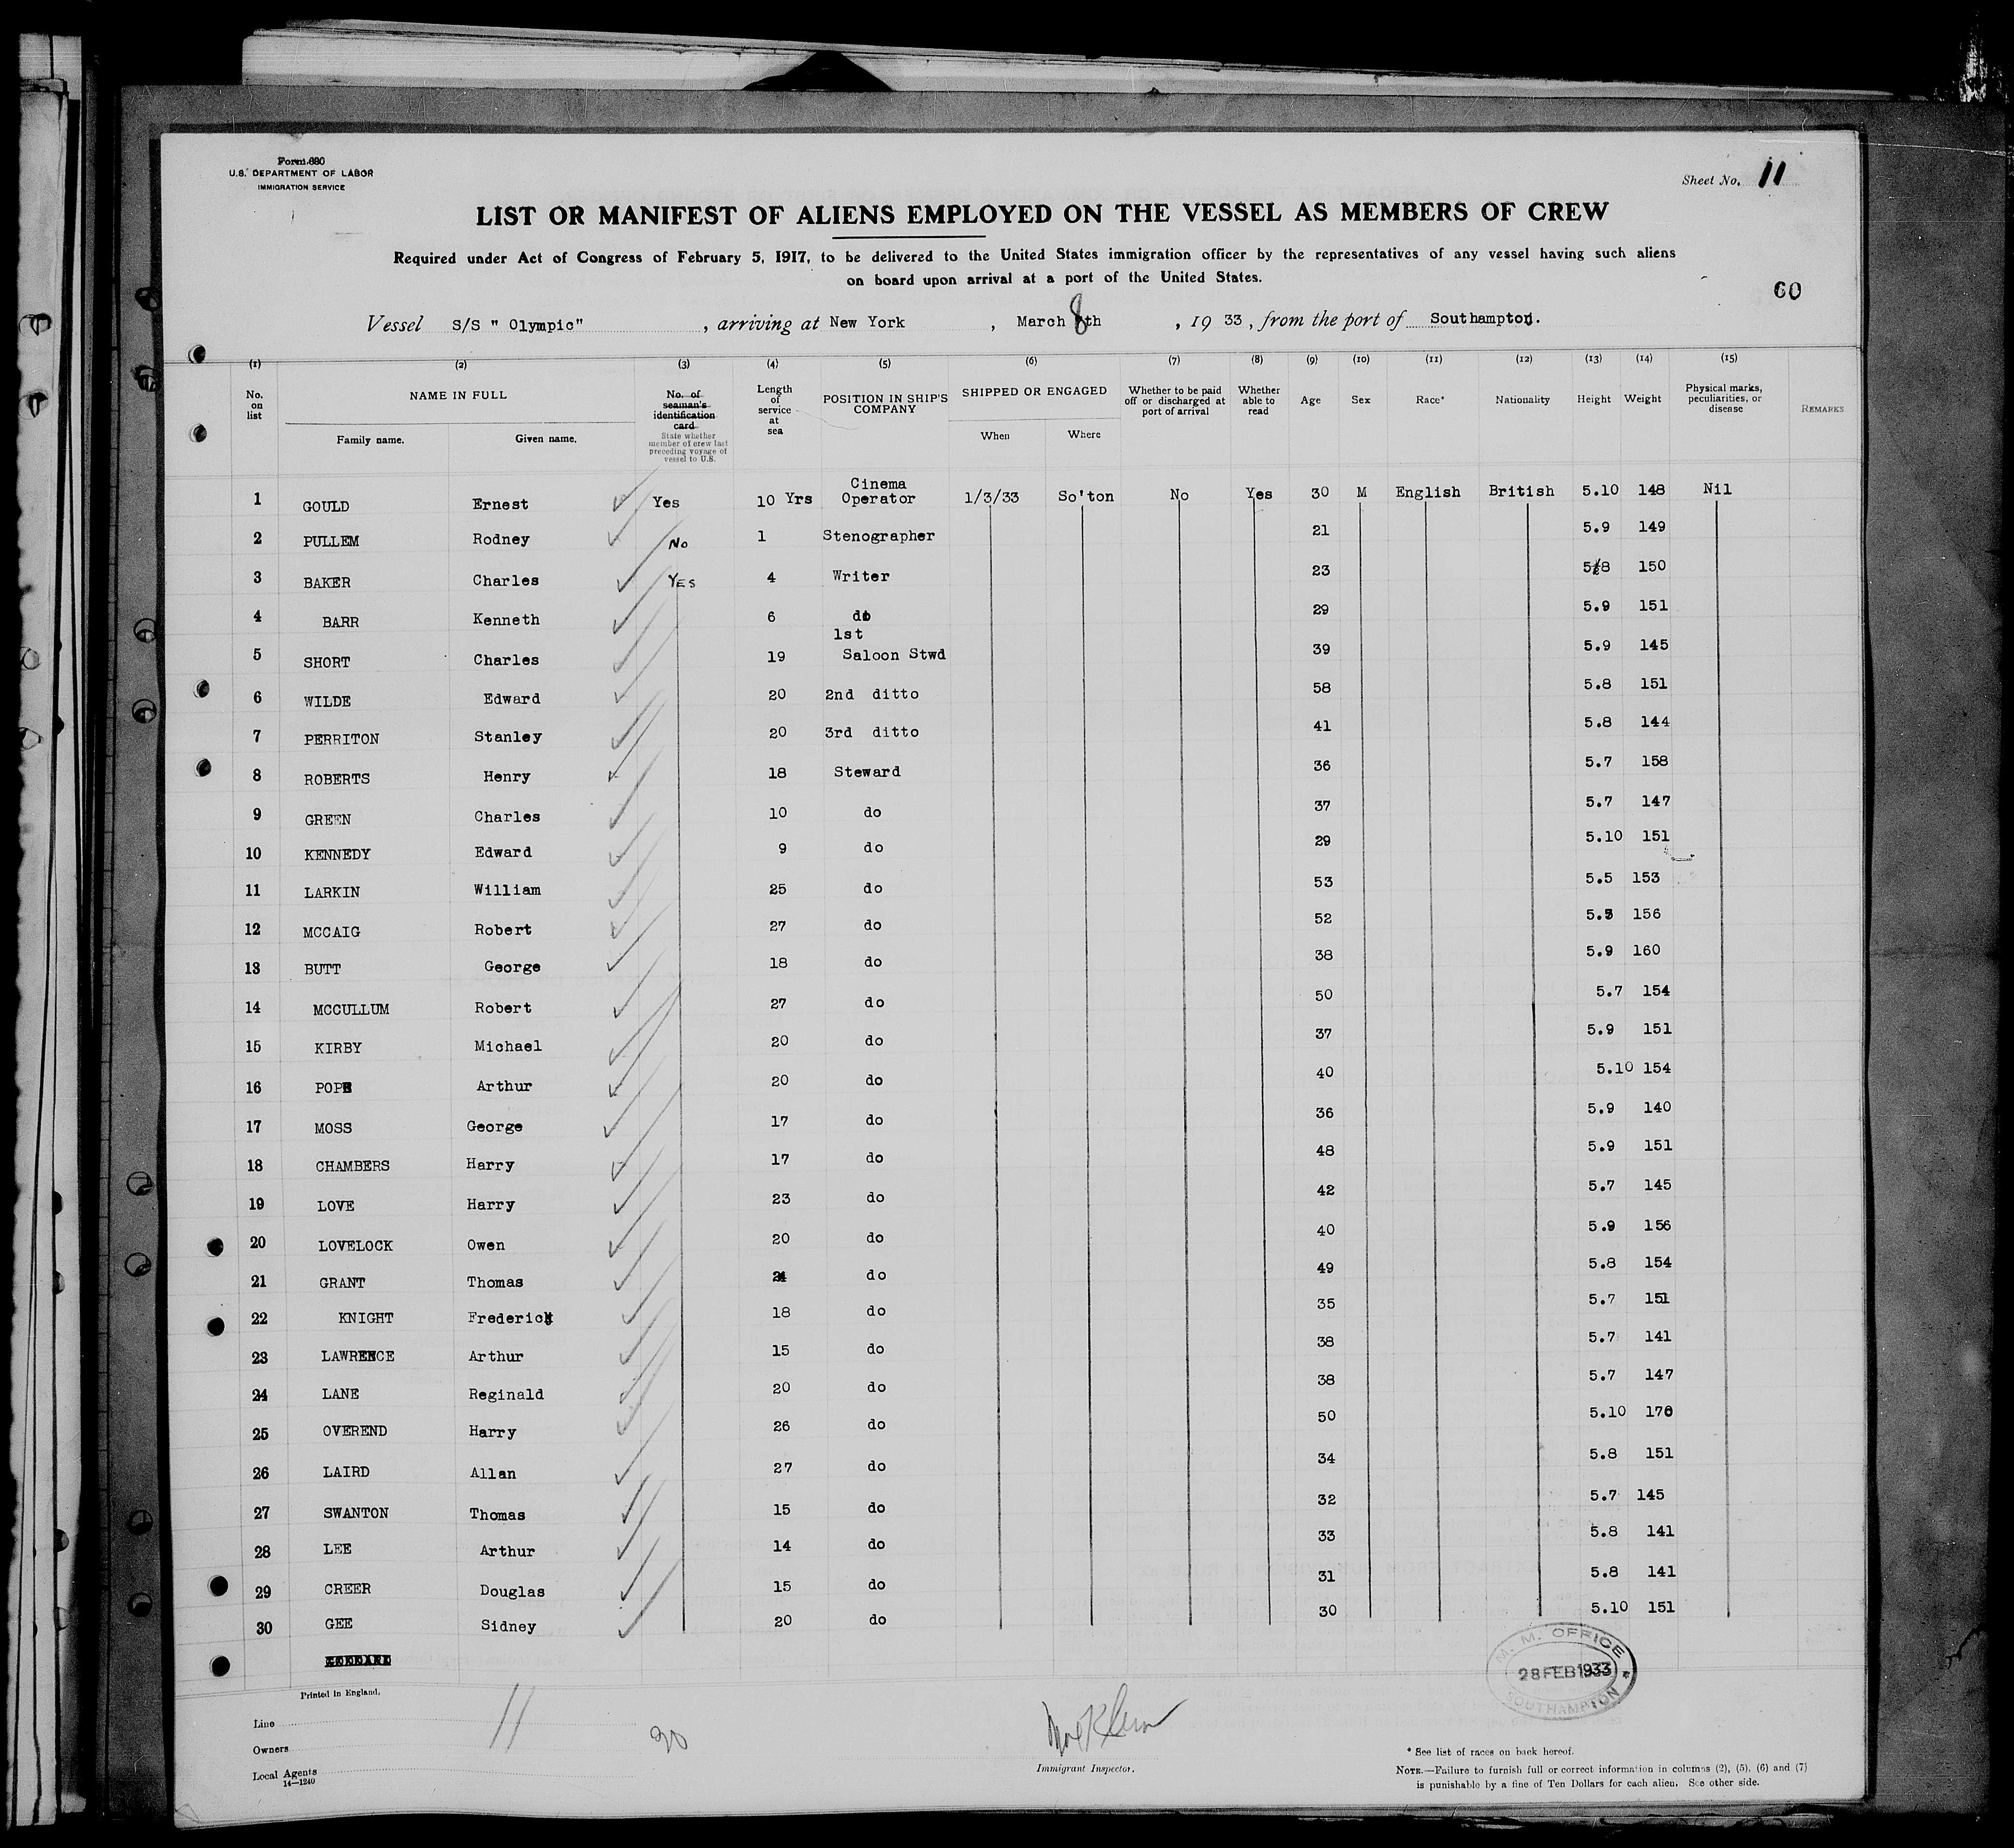 Form 680
U.S. DEPARTMENT OF LABOR
IMMIGRATION SERVICE
Sheet No. 11
LIST OR MANIFEST OF ALIENS EMPLOYED ON THE VESSEL AS MEMBERS OF CREW
Required under Act of Congress of February 5, 1917, to be delivered to the United States immigration officer by the representatives of any vessel having such aliens
on board upon arrival at a port of the United States.
60
Vessel S/S " Olympic" , arriving at New York , March 8th , 19 33 , from the port of Southampton.
(1) (2) (3) (4) (5) (6) (7) (8) (9) (10) (11) (12) (13) (14) (15)
No. on list NAME IN FULL Family name. Given name. No. of seaman's identification card State whether member of crew last preceding voyage of vessel to U.S. Length of service at sea POSITION IN SHIP'S COMPANY SHIPPED OR ENGAGED When Where Whether to be paid off or discharged at port of arrival Whether able to read Age Sex Race* Nationality Height Weight Physical marks, peculiarities, or disease REMARKS
1 GOULD Ernest Yes 10 Yrs Cinema Operator 1/3/33 So'ton No Yes 30 M English British 5.10 148 Nil
2 PULLEM Rodney No 1 Stenographer 21 5.9 149
3 BAKER Charles YES 4 Writer 23 5.8 150
4 BARR Kenneth 6 do 29 5.9 151
5 SHORT Charles 19 1st Saloon Stwd 39 5.9 145
6 WILDE Edward 20 2nd ditto 58 5.8 151
7 PERRITON Stanley 20 3rd ditto 41 5.8 144
8 ROBERTS Henry 18 Steward 36 5.7 158
9 GREEN Charles 10 do 37 5.7 147
10 KENNEDY Edward 9 do 29 5.10 151
11 LARKIN William 25 do 53 5.5 153
12 MCCAIG Robert 27 do 52 156
13 BUTT George 18 do 38 5.9 160
14 MCCULLUM Robert 27 do 50 5.7 154
15 KIRBY Michael 20 do 37 5.9 151
16 POPE Arthur 20 do 40 5.10 154
17 MOSS George 17 do 36 5.9 140
18 CHAMBERS Harry 17 do 48 5.9 151
19 LOVE Harry 23 do 42 5.7 145
20 LOVELOCK Owen 20 do 40 5.9 156
21 GRANT Thomas do 49 5.8 154
22 KNIGHT Frederick 18 do 35 5.7 151
23 LAWRENCE Arthur 15 do 38 5.7 141
24 LANE Reginald 20 do 38 5.7 147
25 OVEREND Harry 26 do 50 5.10 170
26 LAIRD Allan 27 do 34 5.8 151
27 SWANTON Thomas 15 do 32 5.7 145
28 LEE Arthur 14 do 33 5.8 141
29 CREER Douglas 15 do 31 5.8 141
30 GEE Sidney 20 do 30 5.10 151
M. M. OFFICE
28 FEB 1933
SOUTHAMPTON
Printed in England.
Line
Owners
Local Agents
14—1240
11
30
Immigrant Inspector.
* See list of races on back hereof.
NOTE.—Failure to furnish full or correct information in columns (2), (5), (6) and (7)
is punishable by a fine of Ten Dollars for each alien. See other side.